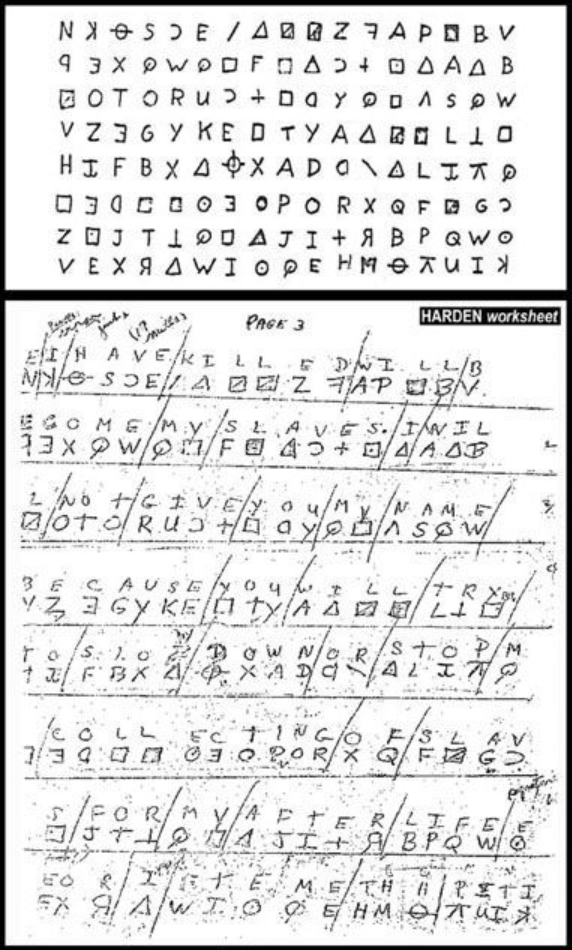 N ꓘ ⊖ S Ɔ E / Δ ▨ ▨ Z ꟻ A P ▨ B V
ꟼ Ǝ X Ø W Ø □ F ⊡ Δ Ɔ + ⊡ Δ A Δ B
▨ O T O R U Ɔ + □ ᗡ Y Ø □ Λ S Ø W
V Z Ǝ G Y K E □ T Y A Δ ▨ ▨ L ⊥ □
H I F B X Δ ⌖ X A D ᗡ \ Δ L I π Ø
□ Ǝ ᗡ □ ▨ ⊙ Ǝ O P O R X Q F ▨ G Ɔ
Z ⊡ J T ⊥ Ø □ Δ J I + Я B P Q W ⊙
V E X Я Δ W I ⊙ Ø E H M ⊖ π U I ꓘ
PAGE 3
HARDEN worksheet
E I / H A V E / K I L L E D / W I L L / B
N ꓘ / ⊖ S Ɔ E / / Δ ▨ ▨ Z ꟻ / A P ▨ B / V
E C O M E / M Y / S L A V E S. / I / W I L
Ǝ X Ø W / Ø □ / F ▨ Δ Ɔ + ⊡ / Δ / A Δ B
L / N O T / G I V E / Y O U / M Y / N A M E
▨ / O T O / R U Ɔ + / □ ᗡ Y / Ø □ / Λ S Ø W
B E C A U S E / Y O U / W I L L / T R Y
V Z Ǝ G Y K E / □ T Y / A Δ ▨ ▨ / L ⊥ □
T O / S L O W / D O W N / O R / S T O P / M
I / F B X Δ / ⌖ X A D / ᗡ \ / Δ L I π / Ø
/ C O L L E C T I N G / O F / S L A V
/ Ǝ ᗡ □ □ ⊙ Ǝ O P O R / X Q / F ▨ G Ɔ
S / F O R / M Y / A F T E R / L I F E E
□ / J T ⊥ / Ø □ / Δ J I + Я / B P Q W ⊙
E O R I E T E M E T H H P I T I
E X Я / Δ W I ⊙ Ø E H M ⊖ π U I ꓘ